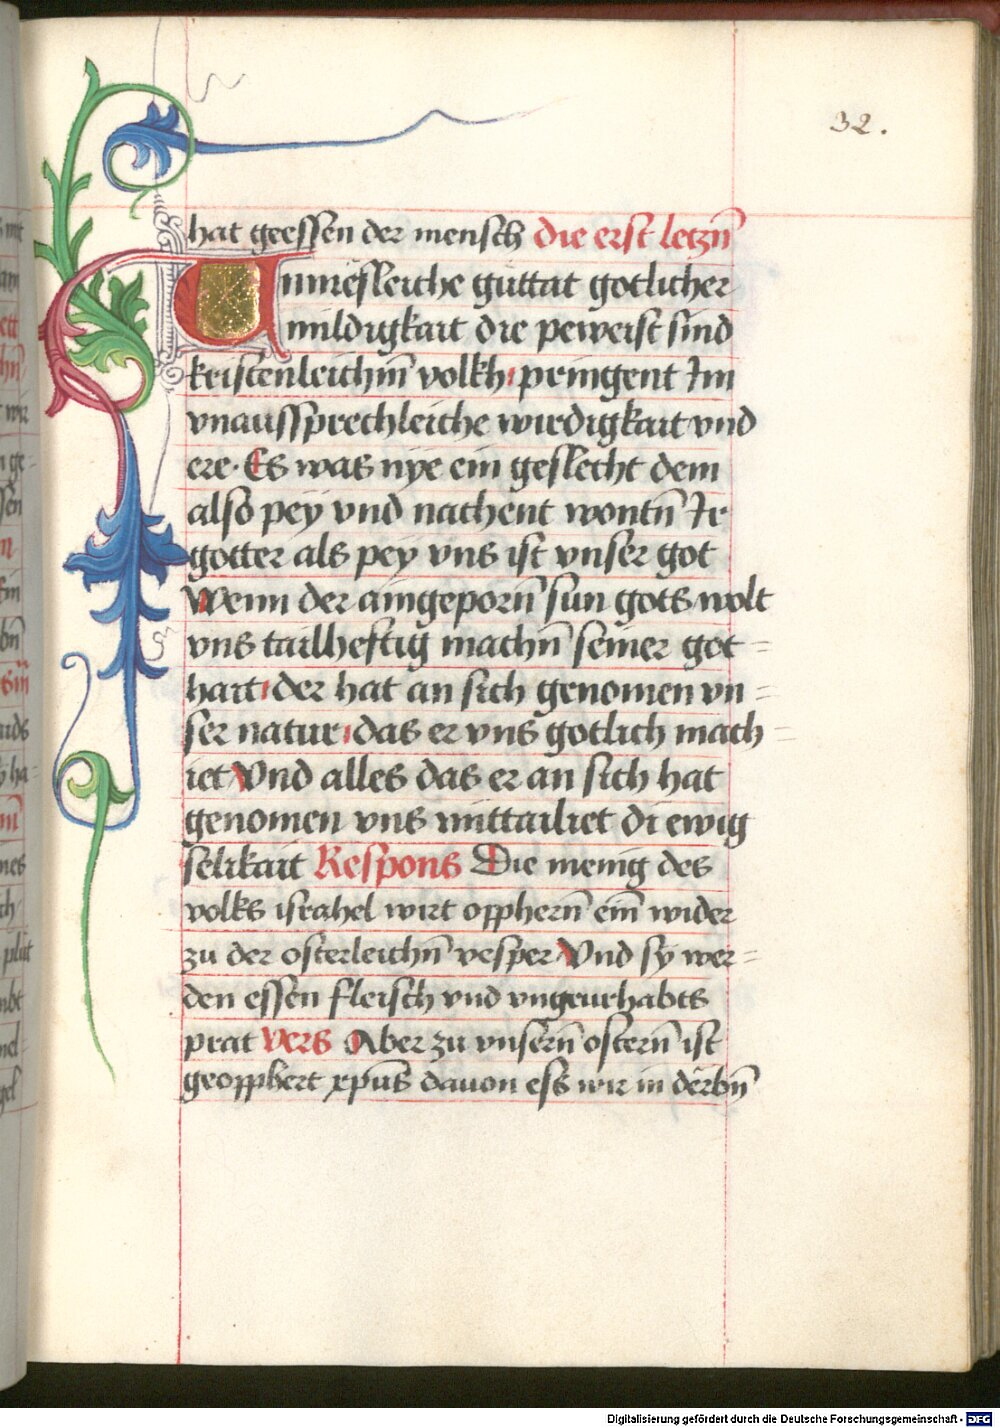 32.
hat geessen der mensch die erst letzn̄
Unmesleiche guttat gotlicher
mildigkait die peweist sind
kristenleichm̄ volkh pringent Im
vnaussprechleiche wirdigkait vnd
ere. Es was nye ein geslecht dem
also pey vnd nachent wontn̄ Ir
gotter als pey vns ist vnser got
Wenn der aingeporn̄ sun gots wolt
vns tailheftig machn̄ seiner got=
hait der hat an sich genomen vn=
ser natur das er vns gotlich mach=
iet Vnd alles das er an sich hat
genomen vns mittailiet di ewig
selikait Respons Die menig des
volks israhel wirt opphern̄ ein̄ wider
zu der osterleichn̄ vesper Vnd sy wer=
den essen fleisch vnd vngeurhabts
prat Vers Aber zu vnsern̄ ostern̄ ist
geopphert xp̄us dauon ess wir in derbn̄
Digitalisierung gefördert durch die Deutsche Forschungsgemeinschaft - DFG